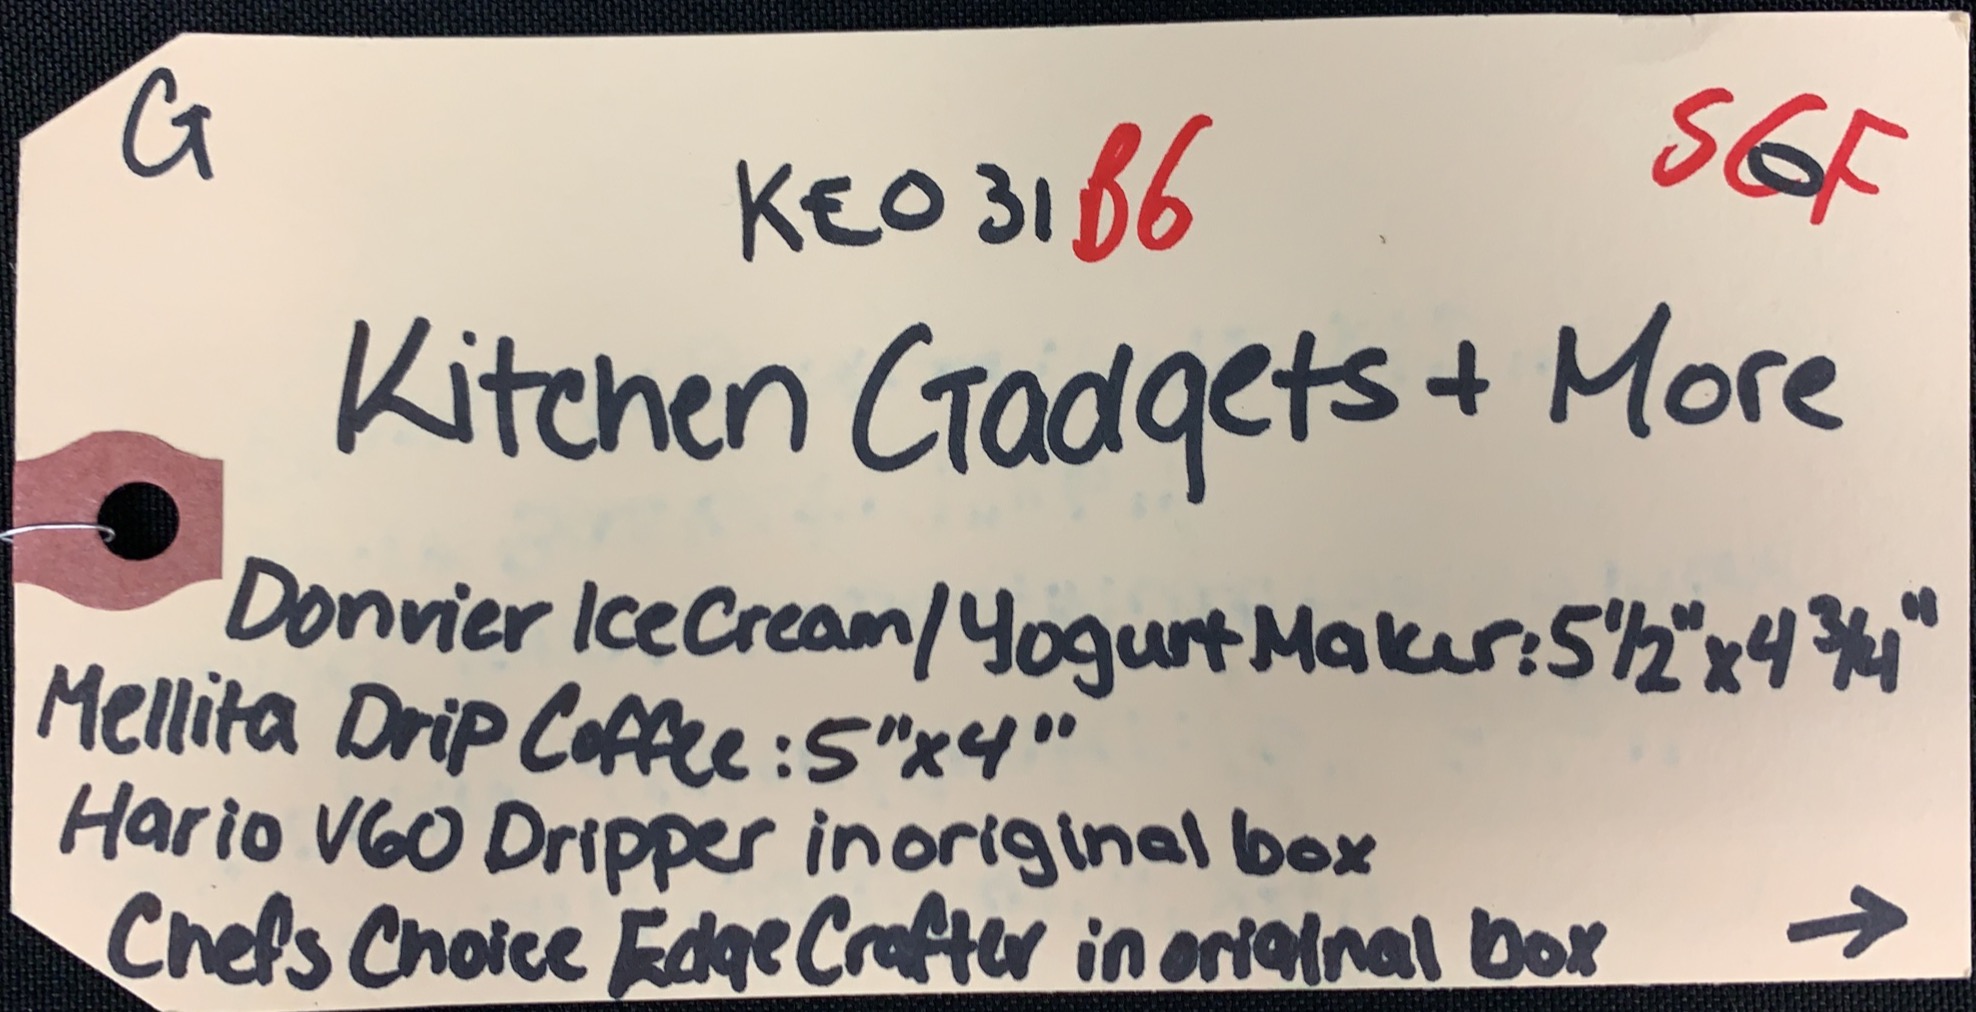 G
KEO 31 B6
S6F
Kitchen Gadgets + More
Donvier Ice Cream/Yogurt Maker: 5 1/2" x 4 3/4"
Mellita Drip Coffee: 5" x 4"
Hario V60 Dripper in original box
Chefs Choice Edge Crafter in original box →